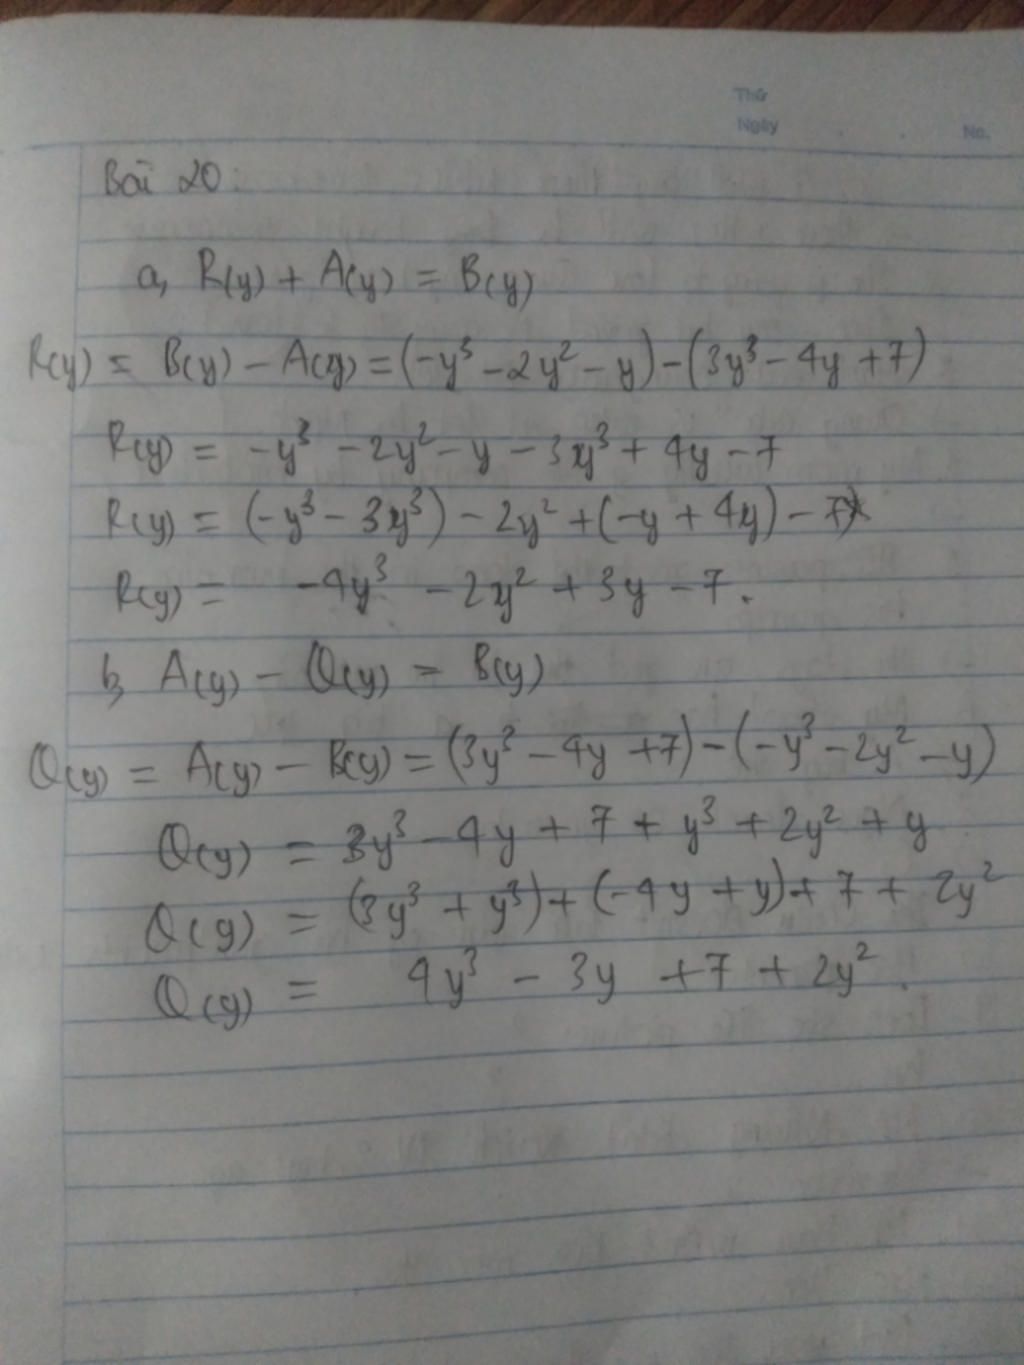 Thứ
Ngày . . No.
Bài 20:
a, R(y) + A(y) = B(y)
R(y) = B(y) - A(y) = (-y³ - 2y² - y) - (3y³ - 4y + 7)
R(y) = -y³ - 2y² - y - 3y³ + 4y - 7
R(y) = (-y³ - 3y³) - 2y² + (-y + 4y) - 7
R(y) = -4y³ - 2y² + 3y - 7.
b, A(y) - Q(y) = B(y)
Q(y) = A(y) - B(y) = (3y³ - 4y + 7) - (-y³ - 2y² - y)
Q(y) = 3y³ - 4y + 7 + y³ + 2y² + y
Q(y) = (3y³ + y³) + (-4y + y) + 7 + 2y²
Q(y) = 4y³ - 3y + 7 + 2y².